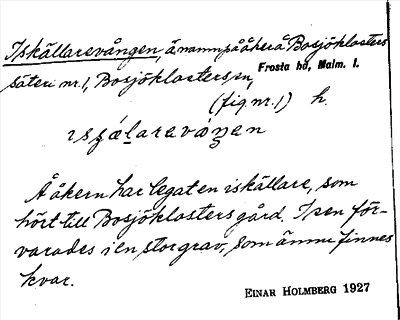 Iskällarevången, änamn på åker å Bosjöklosters
säteri nr.1, Bosjöklosters sn, Frosta hd, Malm. l.
(fig. nr. 1) h.
Å åkern har legat en iskällare, som
hört till Bosjöklosters gård. Isen för-
varades i en stor grav, som ännu finnes
kvar.
EINAR HOLMBERG 1927